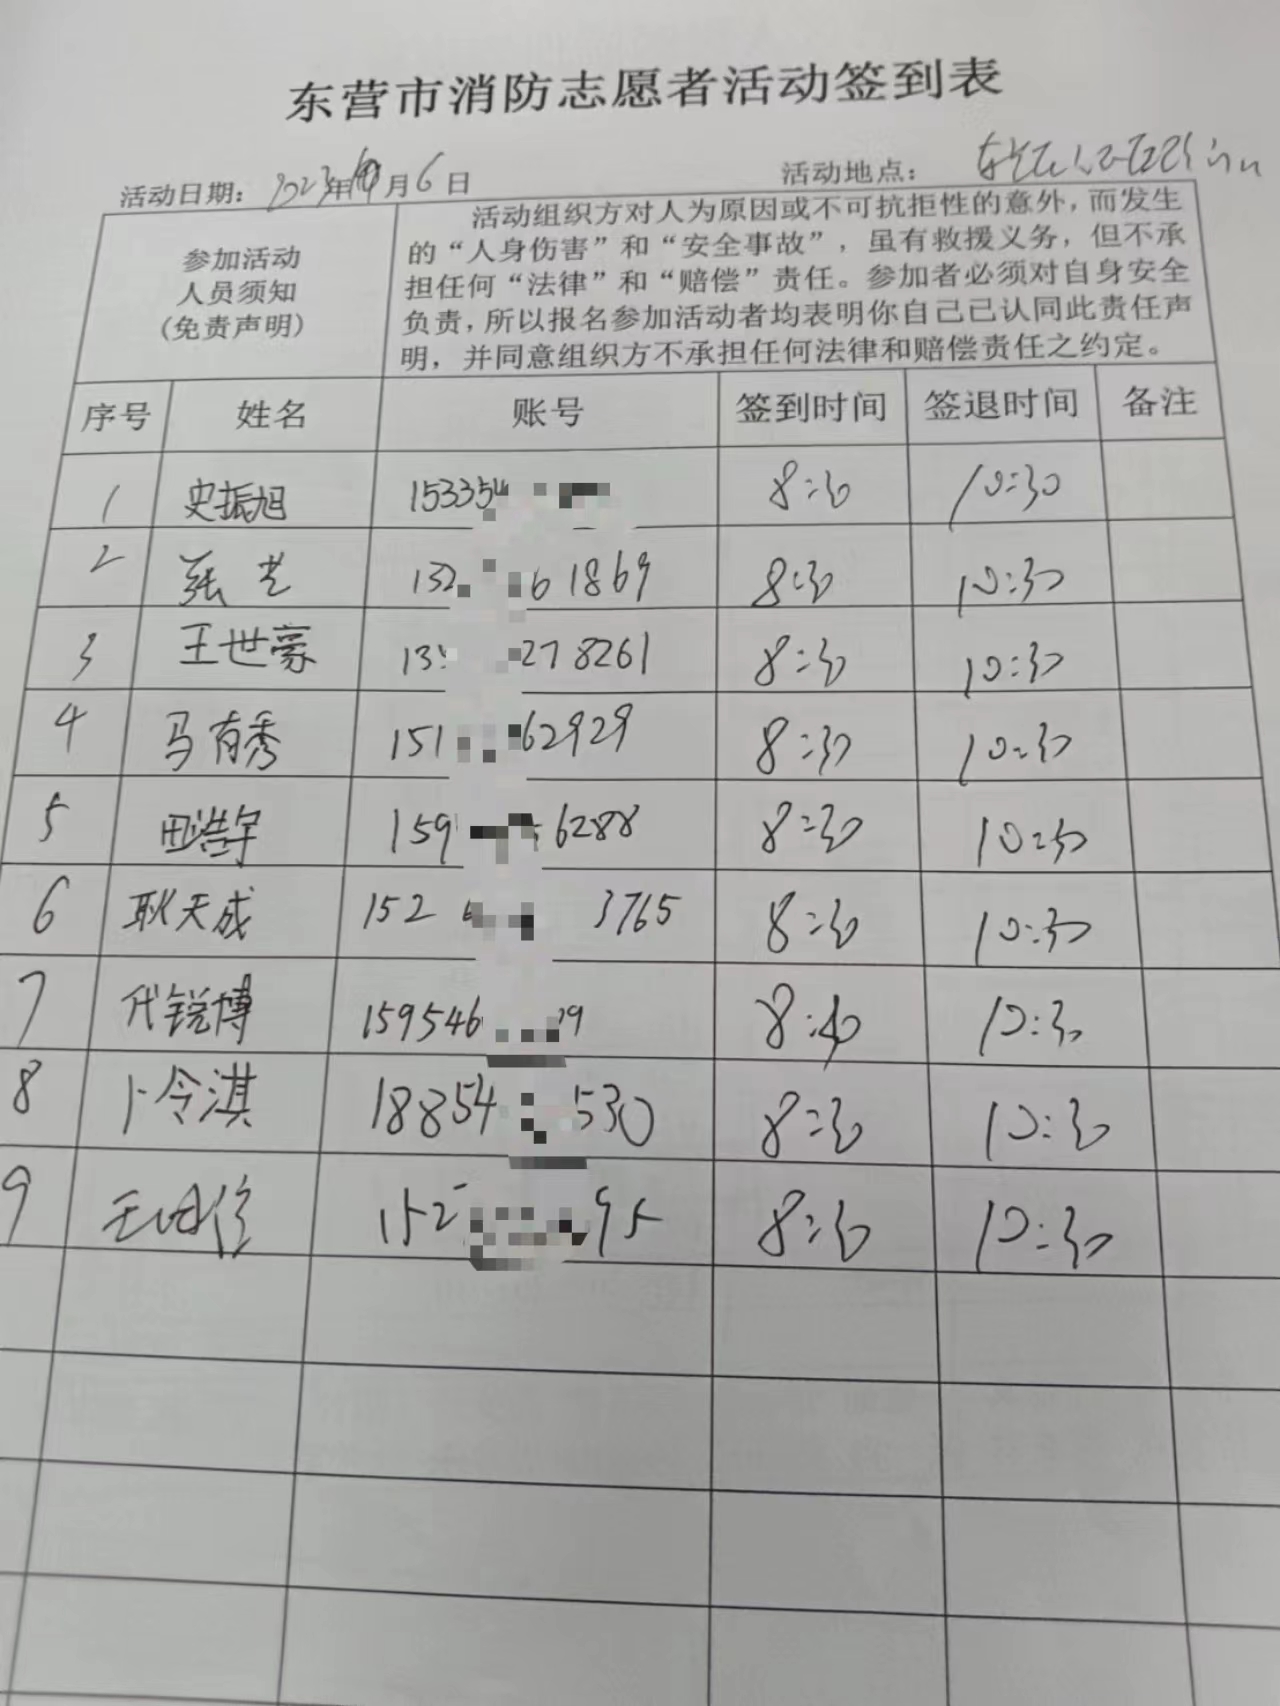 东营市消防志愿者活动签到表
活动日期：2023年 月6日
活动地点：
参加活动
人员须知
（免责声明）
活动组织方对人为原因或不可抗拒性的意外，而发生
的“人身伤害”和“安全事故”，虽有救援义务，但不承
担任何“法律”和“赔偿”责任。参加者必须对自身安全
负责，所以报名参加活动者均表明你自己已认同此责任声
明，并同意组织方不承担任何法律和赔偿责任之约定。
序号 姓名 账号 签到时间 签退时间 备注
1 史振旭 153354 8:30 10:30
2 张艺 132 61869 8:30 10:30
3 王世豪 13 278261 8:30 10:30
4 马有秀 151 62929 8:30 10:30
5 田浩宇 159 6288 8:30 10:30
6 耿天成 152 3765 8:30 10:30
7 代锐博 159546 79 8:30 10:30
8 卜令淇 18854 530 8:30 10:30
9 王 152 95 8:30 10:30